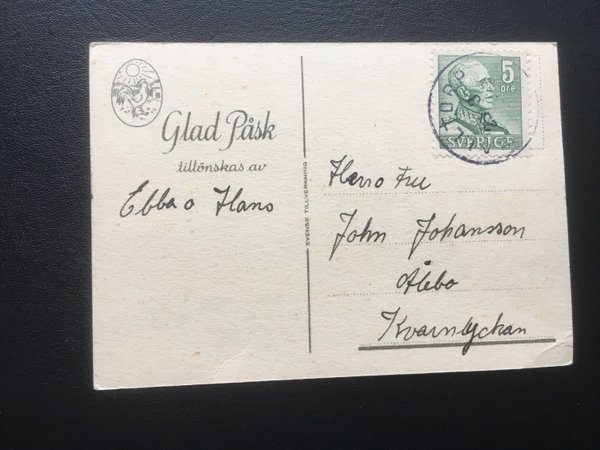 Glad Påsk
tillönskas av
Ebba o Hans
SVENSK TILLVERKNING
5
öre
SVERIGE
Herro Fru
John Johansson
Ålebo
Kvarnlyckan